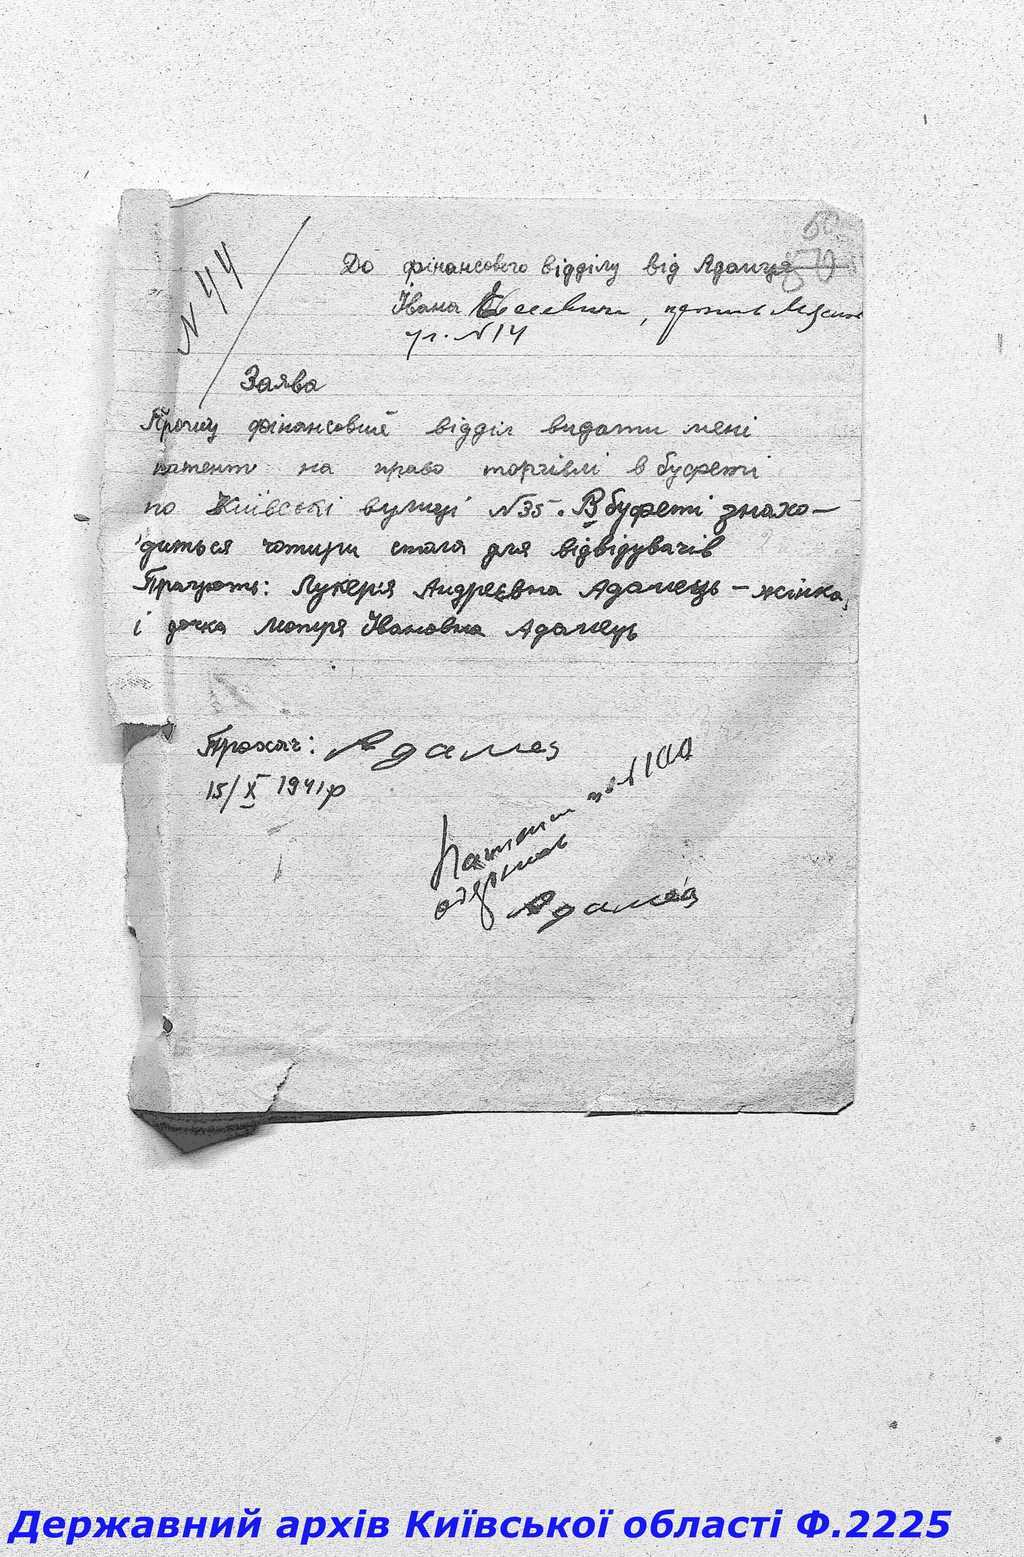 N 44
До фінансового відділу від Адамця
Івана
ул. N14
Заява
Прошу фінансовий відділ видати мені
патент на право торгівлі в буфеті
по Київські вулиці N35. В буфеті знахо-
диться чотири стола для відвідувачів
Працують: Лукерія Андреєвна Адамець - жінка,
і дочка Мотря Івановна Адамець
Прохач: Адамец
15/X 1941р
Патент
одержав
Адамец
Державний архів Київської області Ф.2225